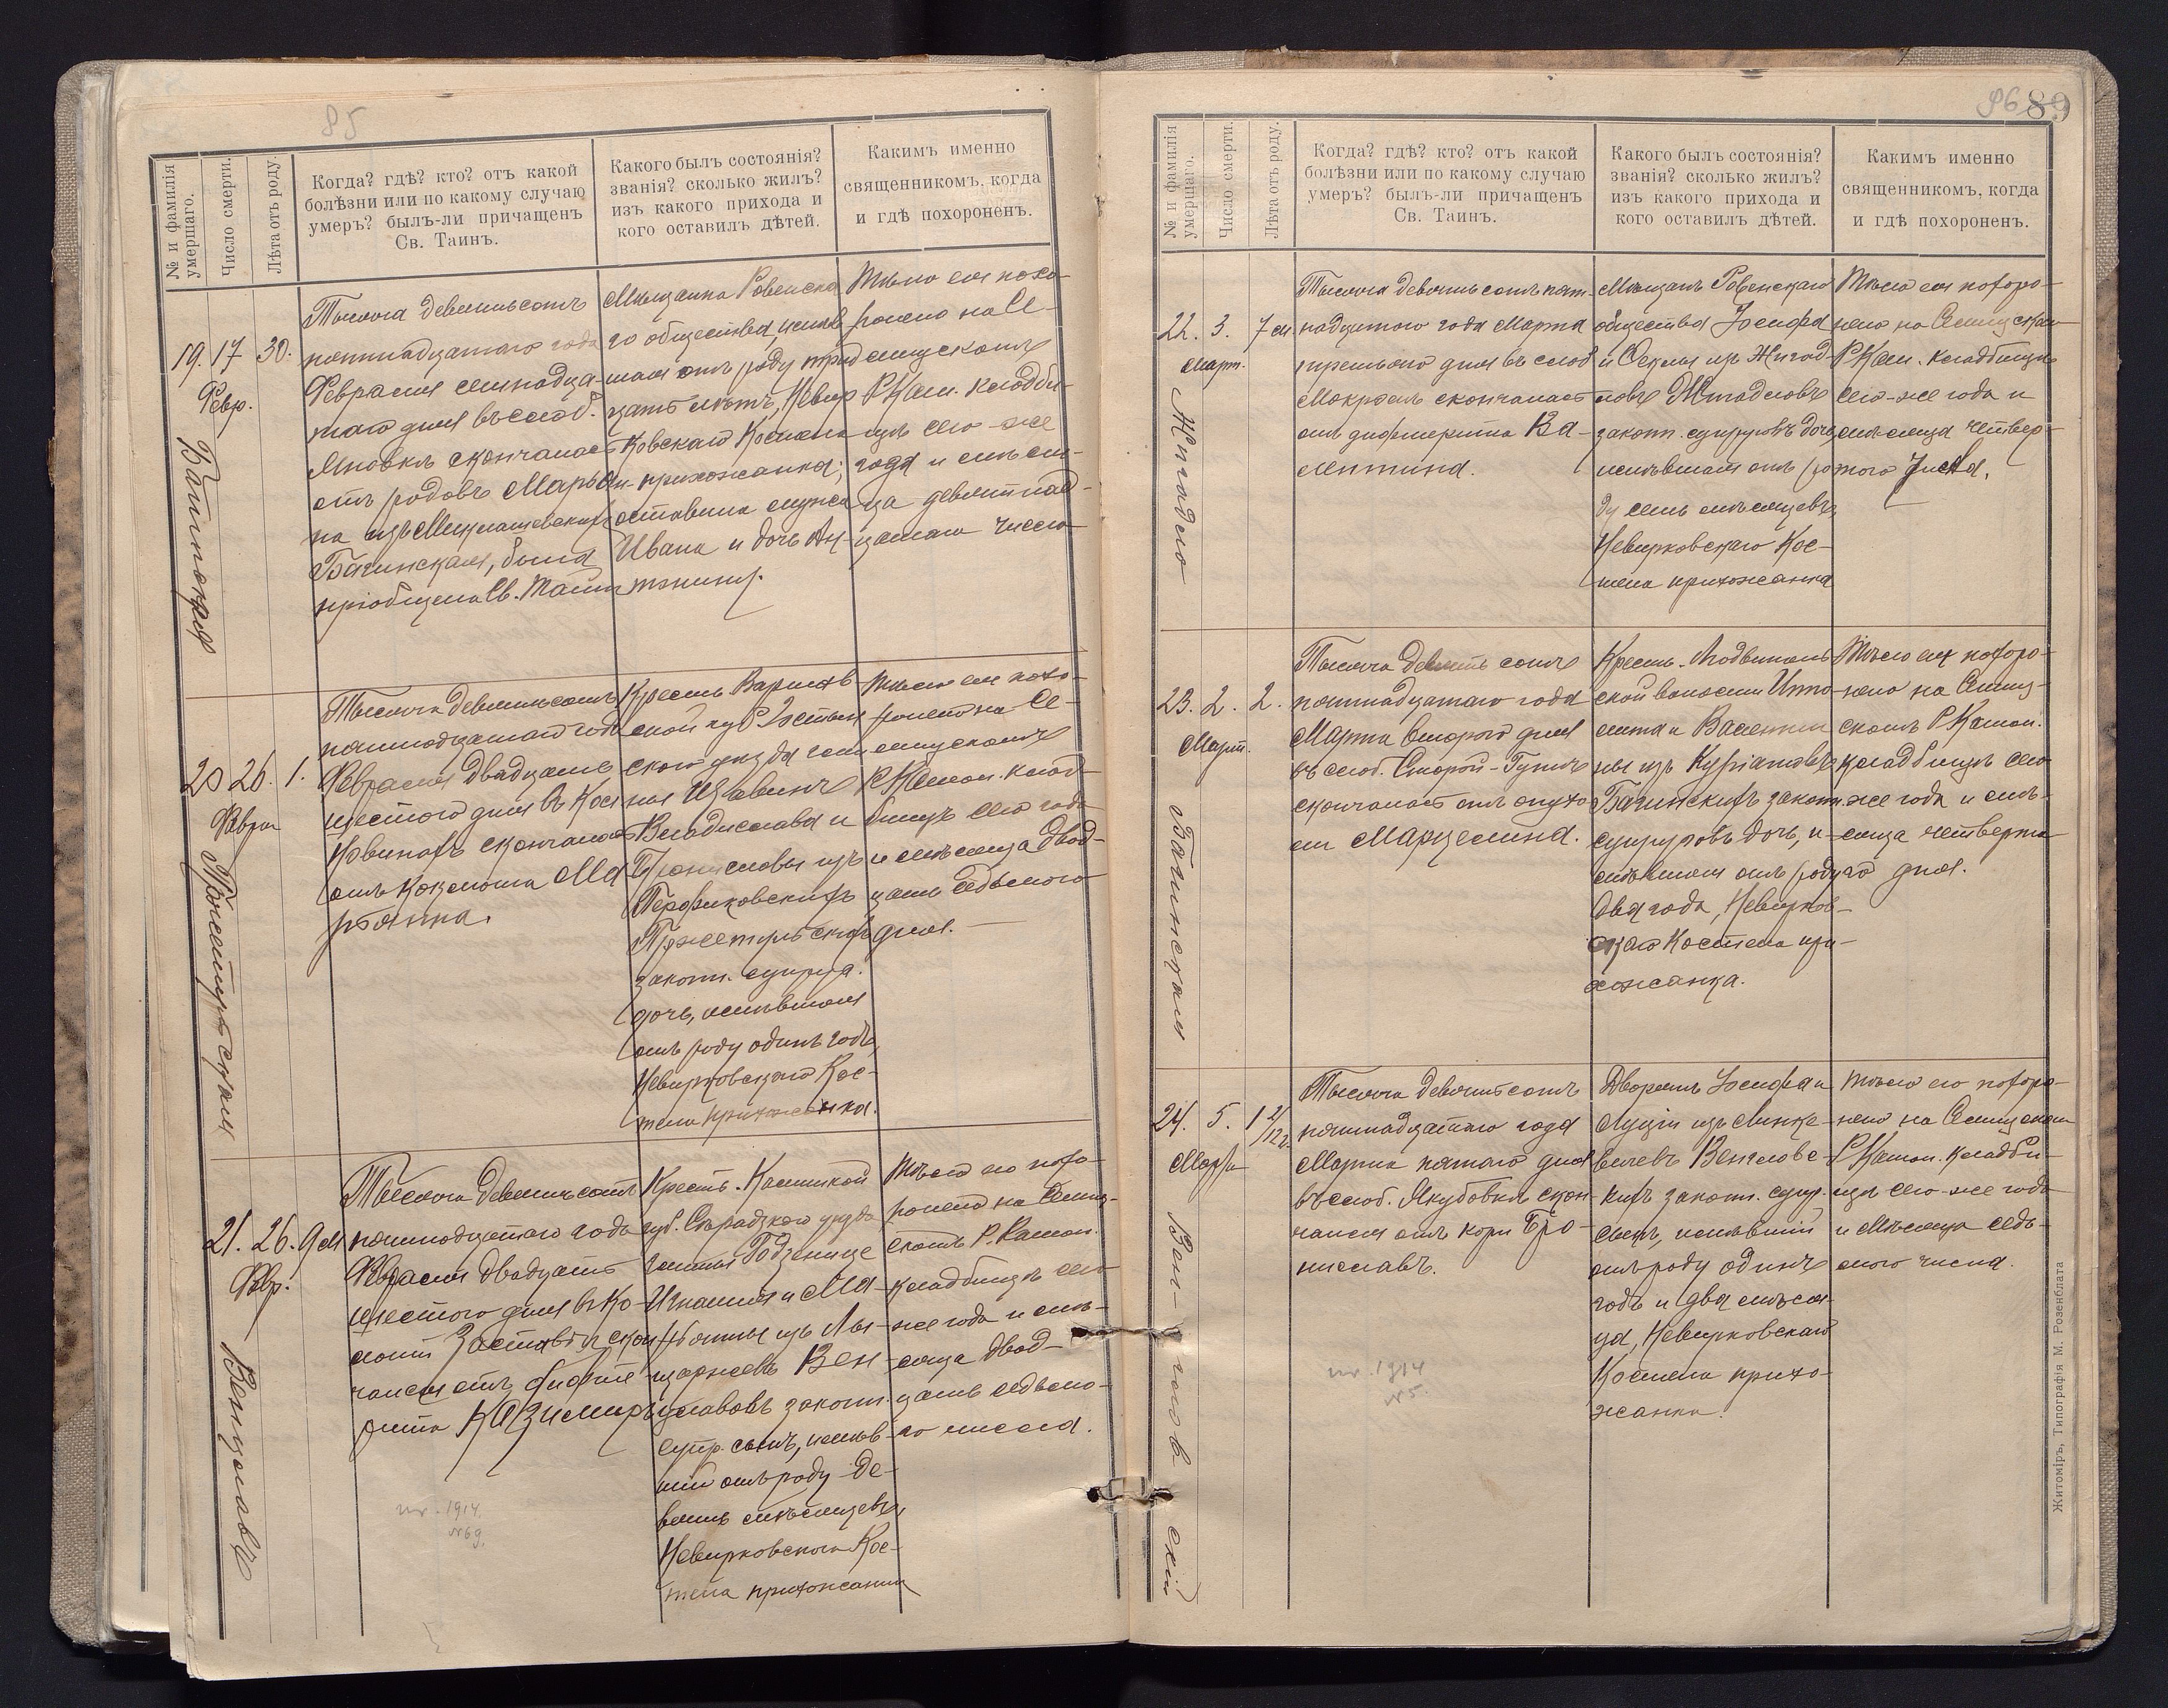 85
№ и фамилія умершаго.
Число смерти.
Лѣта отъ роду.
Когда? гдѣ? кто? отъ какой
болѣзни или по какому случаю
умеръ? былъ-ли причащенъ
Св. Таинъ.
Какого былъ состоянія?
званія? сколько жилъ?
изъ какого прихода и
кого оставилъ дѣтей.
Какимъ именно
священникомъ, когда
и гдѣ похороненъ.
19. 17 30.
Февр.
Тысяча девятьсотъ
пятнадцатаго года
Февраля семнадца-
таго дня въ слоб.
скончалась
отъ родовъ Марья-
на изъ
Багинская, была
пріобщена Св. Таинъ
Мѣщанка Ровенска
го общества, имѣв
шая отъ роду трид
цать лѣтъ, Невир
ковскаго Костела
прихожанка;
оставила мужа
Ивана и дочь Ан-
тонину.
Тѣло ея похо-
ронено на Се-
мицкомъ
Р Кат. кладби-
щѣ сего-же
года и мѣся-
ца девятнад-
цатаго числа
20 26. 1.
Февра
Тысяча девятьсотъ
пятнадцатаго года
Февраля двадцать
шестого дня въ Кол
скончалась
отъ коклюша Ма
рьянна.
Крестъ Варшав-
ской губ.
скаго уѣзда гми
ны
Владислава и
Брониславы изъ
закон. супруг.
дочь, имѣвшая
отъ роду одинъ годъ,
Невирковскаго Кос-
тела прихожанка.
Тѣло ея похо-
ронено на Се-
мицкомъ
Р Катол. клад-
бищѣ сего года
и мѣсяца двад-
цать седьмого
дня.
21. 26. 9 м
Февр.
Венцлавъ
Тысяча девятьсотъ
пятнадцатаго года
Февраля двадцать
шестого дня въ Ко-
лоніи Заставья скон
чался отъ дифте
рита Казимиръ
Крестъ. Калишской
губ. Сѣрадзкаго уѣзда
гмины Годзенице
Игнатія и Ма-
рьянны изъ
Вен-
цлавовъ закон.
супр. сынъ, имѣв
шій отъ роду де-
вять мѣсяцевъ,
Невирковскаго Кос-
тела прихожанин
Тѣло его похо-
ронено на Семиц-
комъ Р. Катол.
кладбищѣ сего
же года и мѣ-
сяца двад-
цать седьмо-
го числа.
ur. 1914.
N 69.
86 89
№ и фамилія умершаго.
Число смерти.
Лѣта отъ роду.
Когда? гдѣ? кто? отъ какой
болѣзни или по какому случаю
умеръ? былъ-ли причащенъ
Св. Таинъ.
Какого былъ состоянія?
званія? сколько жилъ?
изъ какого прихода и
кого оставилъ дѣтей.
Какимъ именно
священникомъ, когда
и гдѣ похороненъ.
22. 3. 7 м
Март.
Жигадло
Тысяча девятьсотъ пят-
надцатаго года Марта
третьяго дня въ слоб
скончалась
отъ дифтерита Ва-
лентина.
Мѣщанъ Ровенскаго
общества Іосифа
и Феклы изъ
Жигадловъ
закон. супруговъ дочь,
имѣвшая отъ ро
ду семь мѣсяцевъ,
Невирковскаго Кос-
тела прихожанка
Тѣло ея похоро-
нено на Семицком
Р Кат. кладбищѣ
сего-же года и
мѣсяца четвер-
того числа.
23. 2. 2.
Март.
Багинская
Тысяча девять сотъ
пятнадцатаго года
Марта второго дня
въ слоб. Старой-Гутѣ
скончалась отъ опухо
ли Марцелина.
Крестъ. Людвиполь-
ской волости Иппо-
лита и Валенти
ны изъ
Багинскихъ закон.
супруговъ дочь, и-
мѣвшая отъ роду
два года, Невирков-
скаго Костела при-
хожанка.
Тѣло ея похоро-
нено на Семиц-
комъ Р Катол.
кладбищѣ сего
же года и мѣ-
сяца четверта
го дня.
24. 5. 1 2/12 г.
Марта
Вен-гловскій
Тысяча девятьсотъ
пятнадцатаго года
Марта пятаго дня
въ слоб. Якубовкѣ скон-
чался отъ кори Бро-
ниславъ.
Дворянъ Іосифа и
Луціи изъ Линке-
вичевъ Венгловс-
кихъ закон. супр.
сынъ, имѣвшій
отъ роду одинъ
годъ и два мѣся-
ца, Невирковскаго
Костела прихо-
жанка.
Тѣло его похоро-
нено на Семицком
Р Катол. кладби-
щѣ сего-же года
и Мѣсяца седь-
мого числа.
ur. 1914
N 5.
Житоміръ, Типографія М. Розенблата